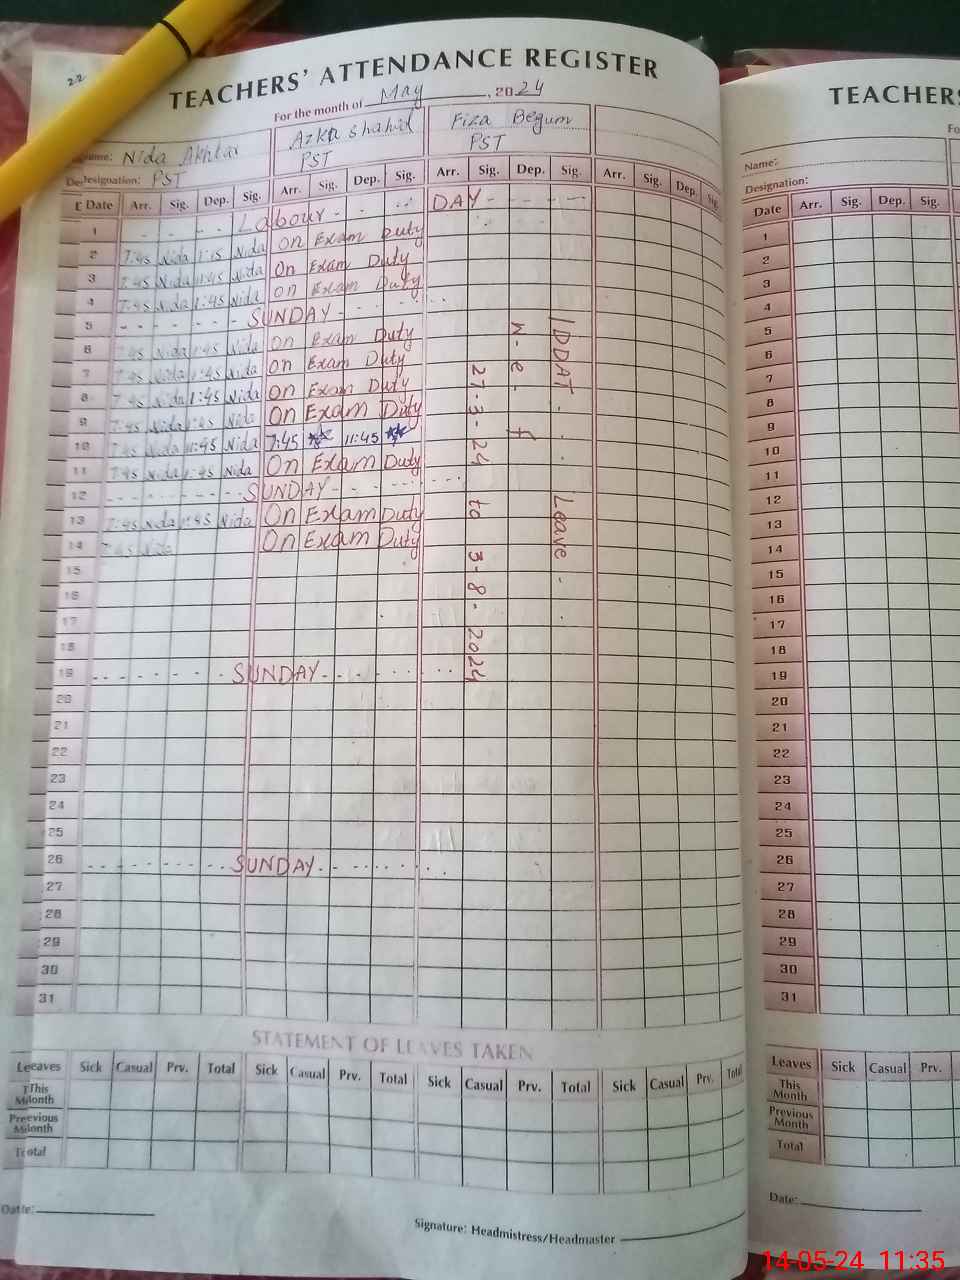 22
TEACHERS' ATTENDANCE REGISTER
For the month of May, 2024
Name: Nida Akhtar Azka Shahid Fiza Begum
Designation: PST PST PST
Date Arr. Sig. Dep. Sig. Arr. Sig. Dep. Sig. Arr. Sig. Dep. Sig. Arr. Sig. Dep. Sig.
1 Labour DAY
2 7:45 Nida 1:15 Nida On Exam Duty
3 7:45 Nida 1:45 Nida On Exam Duty
4 7:45 Nida 1:45 Nida On Exam Duty
5 SUNDAY
6 7:45 Nida 1:45 Nida On Exam Duty
7 7:45 Nida 1:45 Nida On Exam Duty
8 7:45 Nida 1:45 Nida On Exam Duty
9 7:45 Nida 1:45 Nida On Exam Duty
10 7:45 Nida 11:45 Nida 7:45 11:45
11 7:45 Nida 1:45 Nida On Exam Duty
12 SUNDAY
13 7:45 Nida 1:45 Nida On Exam Duty
14 7:45 Nida On Exam Duty
15
16
17
18
19 SUNDAY
20
21
22
23
24
25
26 SUNDAY
27
28
29
30
31
IDDAT Leave
w.e.f
27-3-24 to 3-8-2024
STATEMENT OF LEAVES TAKEN
Leaves Sick Casual Prv. Total Sick Casual Prv. Total Sick Casual Prv. Total Sick Casual Prv. Total
This Month
Previous Month
Total
Date:
Signature: Headmistress/Headmaster
TEACHERS
Fo
Name:
Designation:
Date Arr. Sig. Dep. Sig.
1
2
3
4
5
6
7
8
9
10
11
12
13
14
15
16
17
18
19
20
21
22
23
24
25
26
27
28
29
30
31
Leaves Sick Casual Prv.
This Month
Previous Month
Total
Date:
14-05-24 11:35